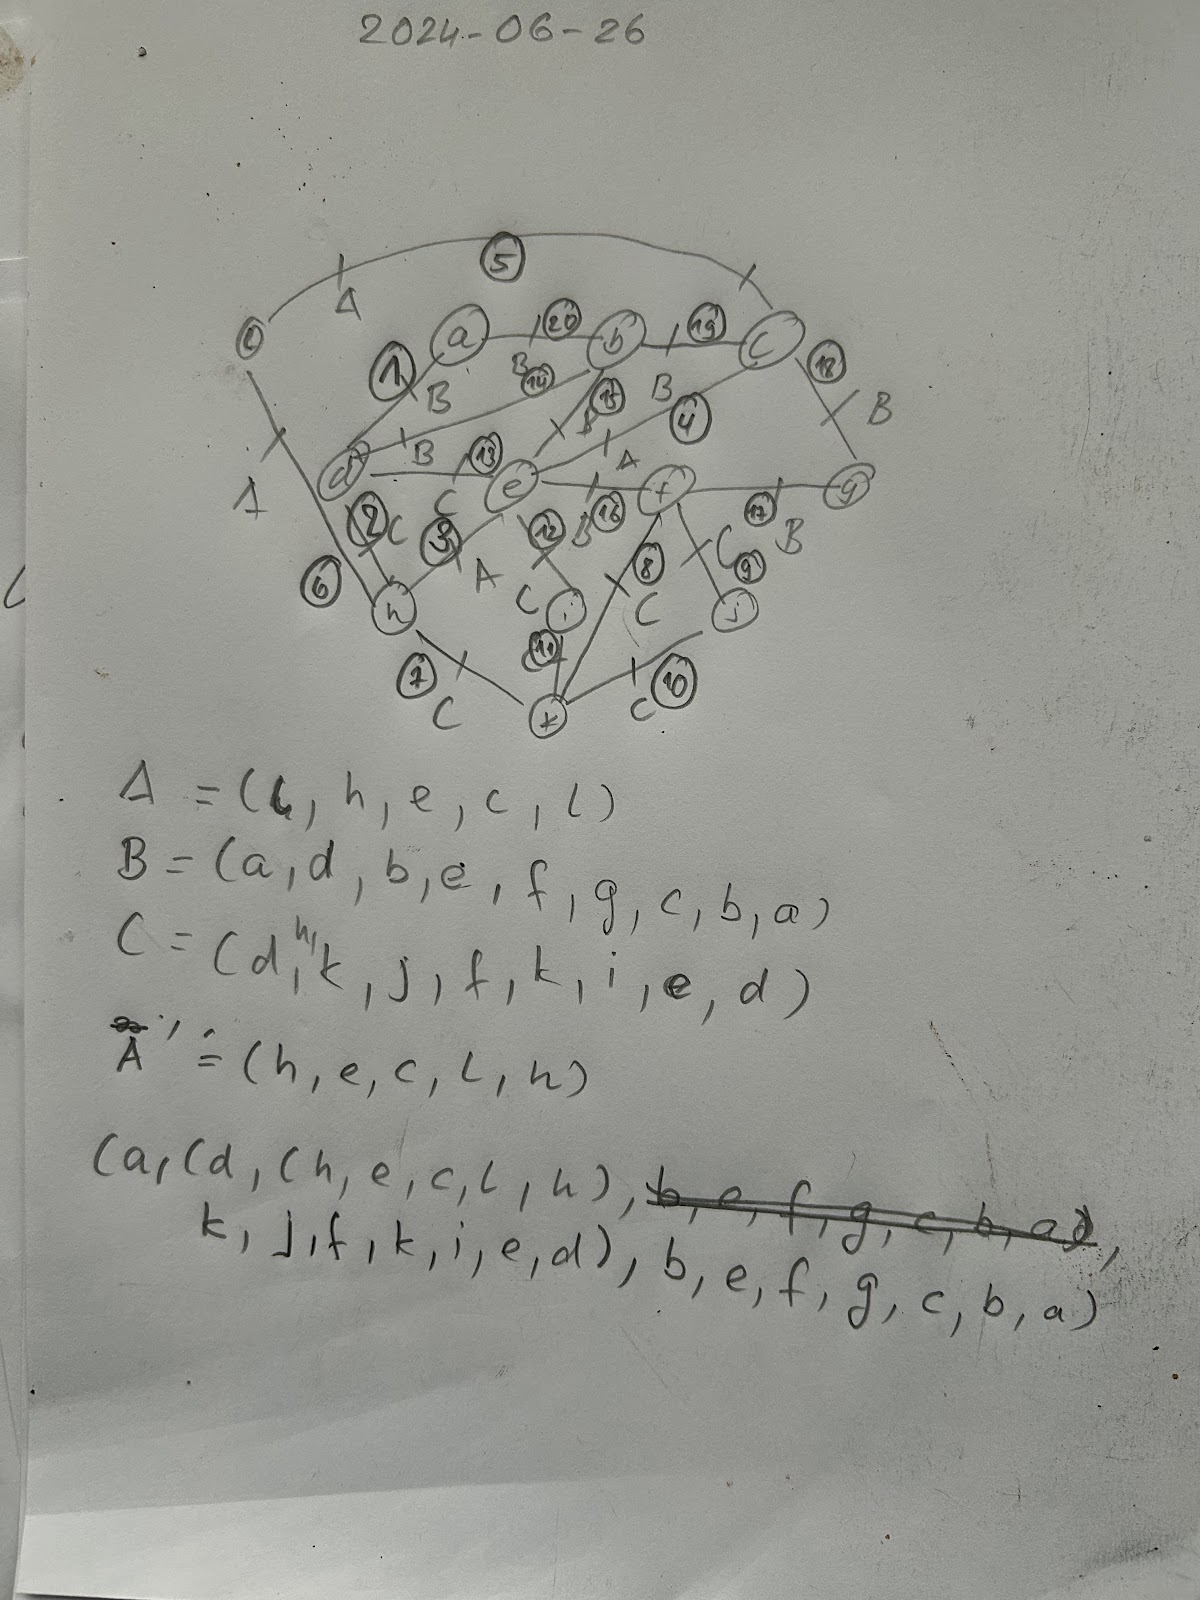 2024-06-26
5
A
l a 20 b 19 c 18
1 B B 14 B B
15 B 4
d B 13 A
e f g
A 2 C C 3 12 B 16 17 B
6 A C 8 C 9
h i C j
7 11 10
C k C
A = (l, h, e, c, l)
B = (a, d, b, e, f, g, c, b, a)
C = (d, h, k, j, f, k, i, e, d)
A' = (h, e, c, l, h)
(a, (d, (h, e, c, l, h), b, e, f, g, c, b, a),
k, j, f, k, i, e, d), b, e, f, g, c, b, a)